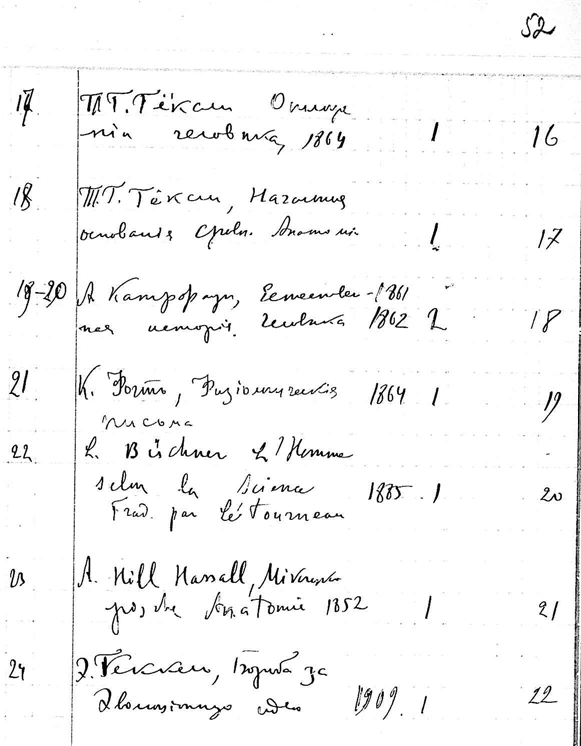 52
17 Т.Г. Гёксли О положе
нiи человека, 1864 1 16
18 Т.Г. Гёксли, Начальныя
основанiя сравн. Анатомiи 1 17
19-20 А Катрфаж, Естествен- 1861
ная исторiя человека 1862 2 18
21 К. Фогт, Физiологическiя 1864 1 19
письма
22 L. Büchner L'Homme
selon la Science 1885. 1 20
Trad. par Létourneau
23 A. Hill Hassall, Mikrosko
pische Anatomie 1852 1 21
24 Э. Геккель, Борьба за
Эволюцiонную идею 1909. 1 22